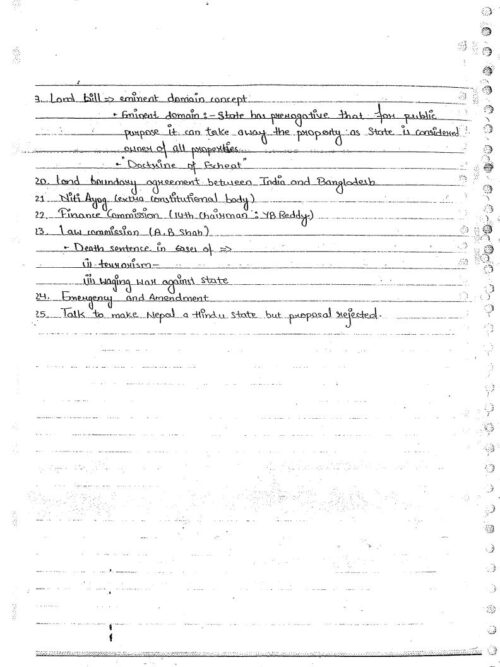 9. Land bill ⇒ eminent domain concept
• Eminent domain :- State has prerogative that for public
purpose it can take away the property as State is considered
owner of all properties.
• "Doctrine of Escheat"
20. Land boundary agreement between India and Bangladesh
21. Niti Ayog (extra constitutional body)
22. Finance Commission (14th chairman : YB Reddy)
23. Law commission (A.P. Shah)
• Death sentence in cases of ⇒
(i) terrorism-
(ii) Waging war against state
24. Emergency and Amendment
25. Talk to make Nepal a Hindu State but proposal rejected.